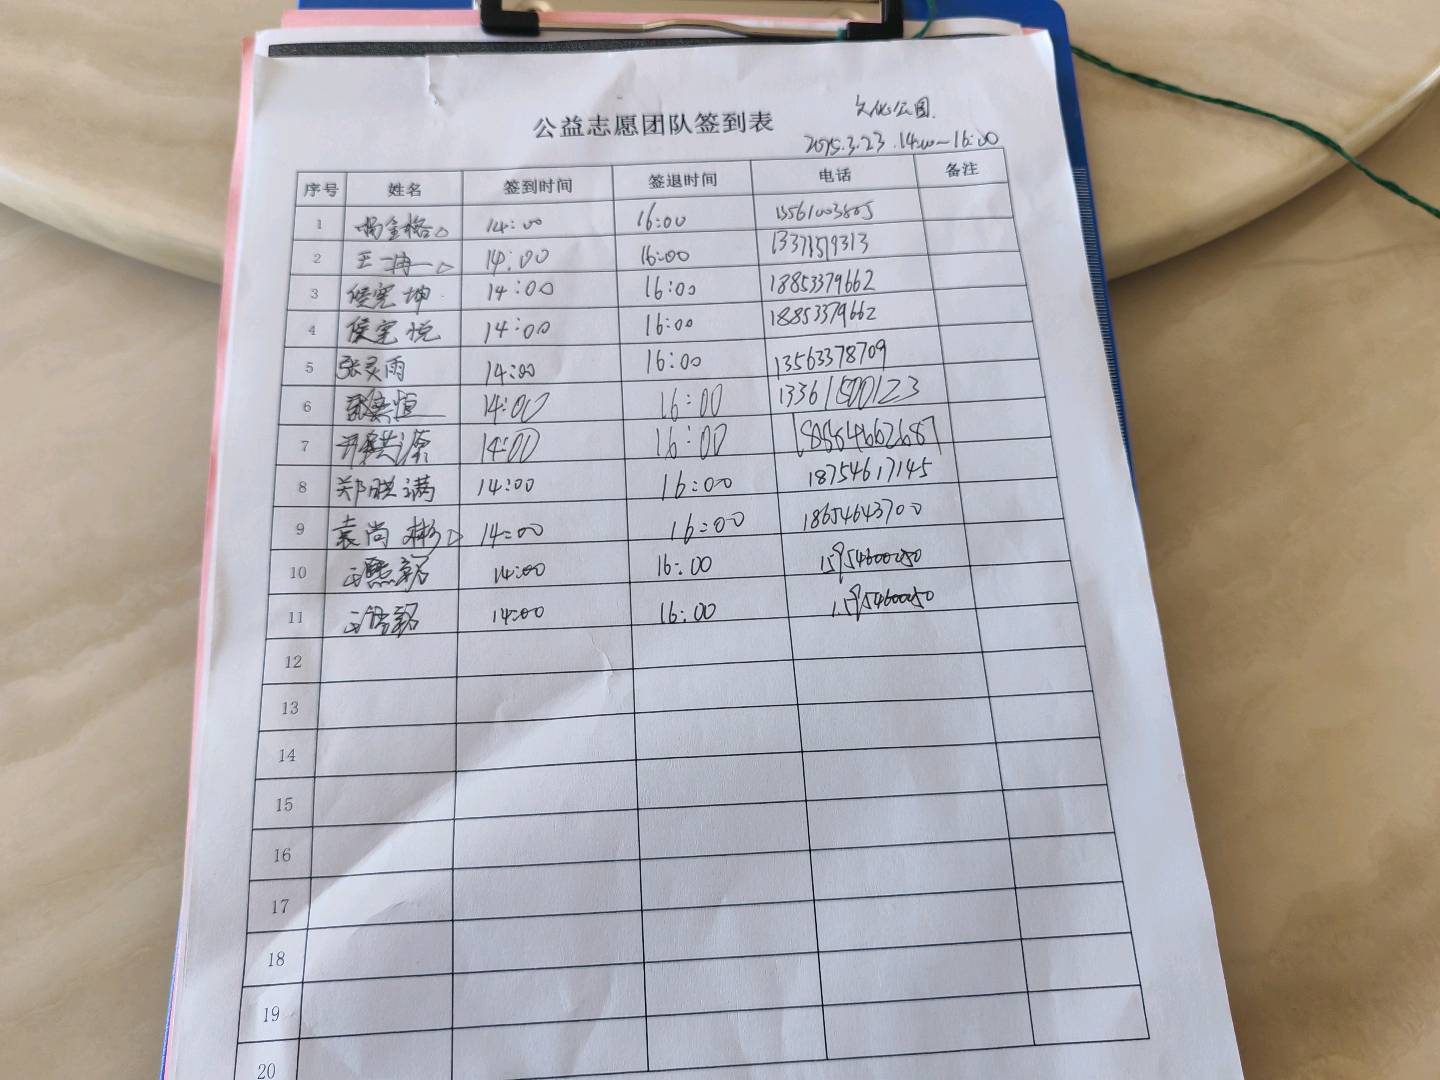 文化公园
公益志愿团队签到表
2025.3.23.14:00-16:00
序号 姓名 签到时间 签退时间 电话 备注
1 杨金格 14:00 16:00 13561003805
2 王 14:00 16:00
3 侯宪坤 14:00 16:00 18853379662
4 侯宪悦 14:00 16:00 18853379662
5 张灵雨 14:00 16:00 13563378709
6 14:00 16:00 13361500123
7 14:00 16:00 18864662687
8 郑洪满 14:00 16:00 18754617145
9 袁尚彬 14:00 16:00 18654643700
10 14:00 16:00
11 14:00 16:00
12
13
14
15
16
17
18
19
20